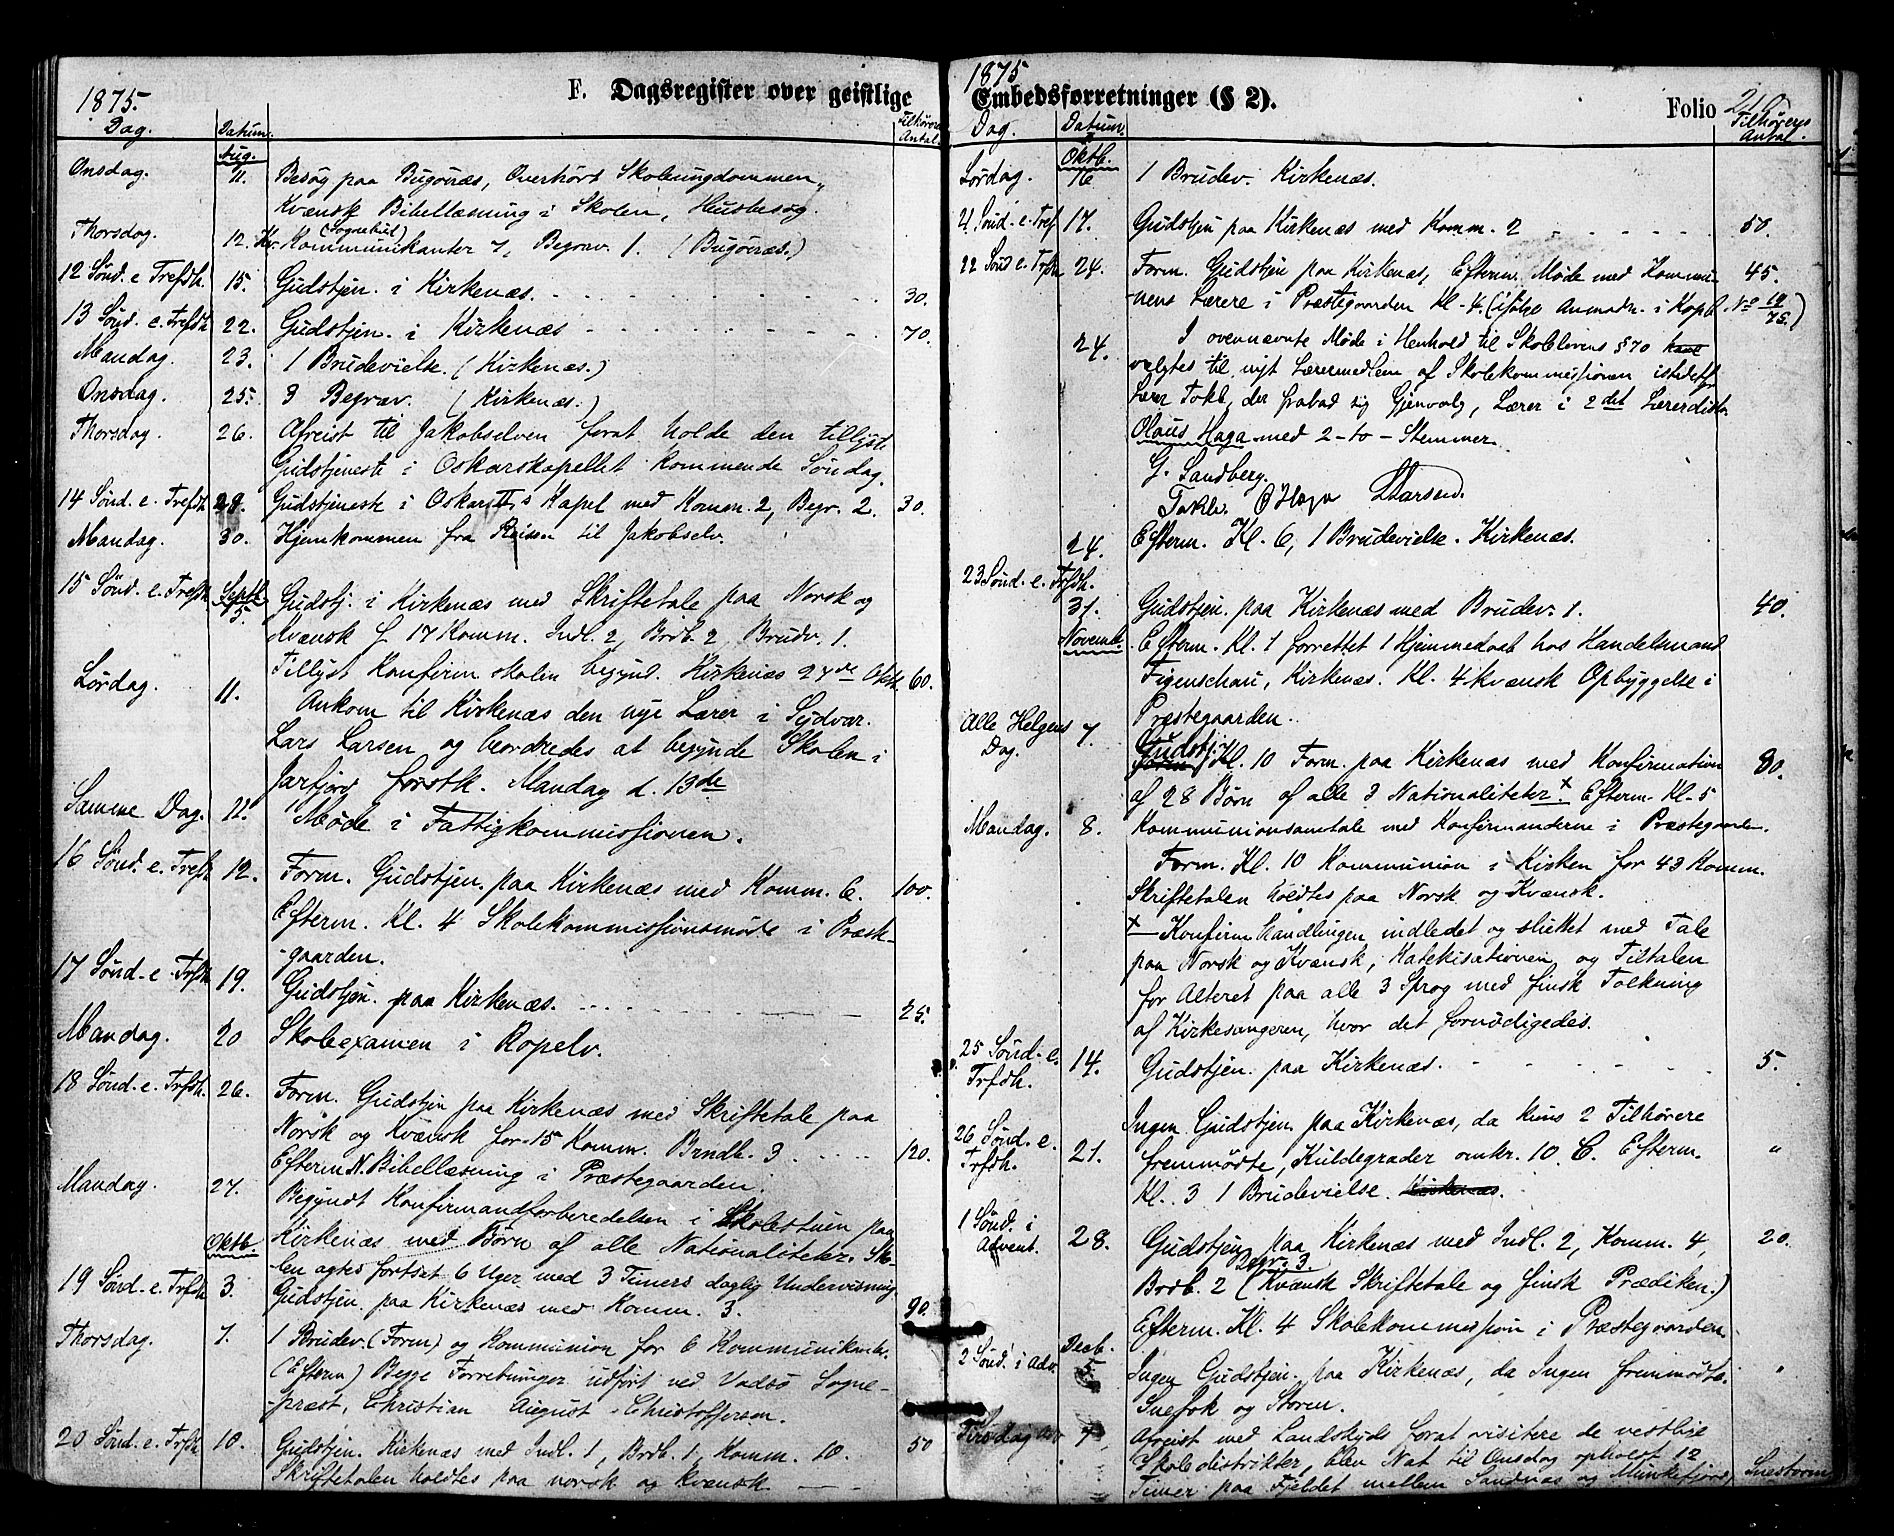 1875.
F. Dagsregister over geistlige
Dag.
Datum.
Tilhørere
Antal.
Aug.
Onsdag. 11. Besøg paa Bugønæs, Overhørt Skoleungdommen,
Kvænsk Bibellæsning i Skolen, Huusbesøg.
(Sognebud)
Thorsdag. 12. Kommunikanter 7, Begrav. 1. (Bugønæs.)
12 Sønd. e. Trefdh. 15. Gudstjen. i Kirkenæs. 30.
13 Sønd. e. Trefdh. 22. Gudstjen. i Kirkenæs 70.
Mandag. 23. 1 Brudevielse. (Kirkenæs.)
Onsdag. 25. 3 Begrav. (Kirkenæs.)
Thorsdag. 26. Afreist til Jakobselven forat holde den tillyste
Gudstjeneste i Oskarskapellet kommende Søndag.
14 Sønd. e. Trefdh. 29. Gudstjeneste i Oskar IIs Kapel med Komm. 2, Begr. 2. 30.
Mandag. 30. Hjemkommen fra Reisen til Jakobselv.
15 Sønd. e. Trefdh. Septb. 5. Gudstj. i Kirkenæs med Skriftetale paa Norsk og
Kvænsk f. 17 Komm. Indl. 2, Brdb. 2, Brudv. 1.
Tillyst Konfirm. skolen begynd. Kirkenæs 27de 60.
Lørdag. 11. Ankom til Kirkenæs den nye Lærer i Sydvar.
Lars Larsen og beordredes at begynde Skolen i
Jarfjord førstk. Mandag d. 13de
Samme Dag. 11. Møde i Fattigkommissionen.
16 Sønd. e. Trefdh. 12. Form. Gudstjen. paa Kirkenæs med Komm. 6. 100.
Efterm. Kl. 4 Skolekommissionsmøde i Præste-
-gaarden.
17 Sønd. e. Trfdh. 19. Gudstjen. paa Kirkenæs. 25.
Mandag. 20 Skoleexamen i Ropelv.
18 Sønd. e. Trfdh. 26. Form. Gudstjen paa Kirkenæs med Skriftetale paa
Norsk og Kvænsk for 15 Komm. Brndb. 3 120.
Efterm N. Bibellæsning i Præstegaarden.
Mandag. 27. Begyndt Konfirmandforberedelsen i Skolestuen paa
Kirkenæs med Børn af alle Nationaliteter. Sko-
Oktb.
len agtes fortsat 6 Uger med 3 Timers daglig Undervisning
19 Sønd. e. Trfdh 3. Gudstjen. paa Kirkenæs med Komm. 3. 90.
Thorsdag. 7. 1 Brudev. (Form) og Kommunion for 6 Kommunikanter.
(Efterm) Begge Forretninger udført ved Vadsø Sogne-
-præst, Christian August Christoffersen.
20 Sønd. e. Trfdh 10. Gudstjen. Kirkenæs med Indl. 1, Brdb. 1, Komm. 10. 50
Skriftetalen holdtes paa norsk og kvænsk
1875
Embedsforretninger (§ 2).
Folio 210
Dag.
Datum.
Tilhøreres
Antal.
Oktb.
Lørdag. 16 1 Brudev. Kirkenæs.
21 Sønd. e. Tref. 17. Gudstjen paa Kirkenæs med Komm. 2 50.
22 Sønd. e. Trfdh 24. Form. Gudstjen paa Kirkenæs, Efterm. Møde med Kommu- 45.
-nens Lærere i Præstegaarden Kl. 4. (ifølge Anmodn. i Kopb. No 19/75.)
24. I ovennævnte Møde i Henhold til Skolelovens § 70
valgtes til nyt Lærermedlem af Skolekommissionen istedetfor
Lærer Takle, der frabad sig Gjenvalg, Lærer i 2det Lærerdistr.
Olaus Haga med 2 - to - Stemmer
G. Sandberg.
Takle. O Haga LLarsen.
24. Efterm. Kl. 6, 1 Brudevielse. Kirkenæs.
23 Sønd. e. Trfdh.
31. Gudstjen. paa Kirkenæs med Brudev. 1. 40.
Novemb. Efterm. Kl. 1 forrettet 1 Hjemmedaab hos Handelsmand
Figenschau, Kirkenæs. Kl. 4 kvænsk Opbyggelse i
Præstegaarden.
Alle Helgens Dag. 7. Gudstj. Kl. 10 Form. paa Kirkenæs med Konfirmation 80.
af 28 Børn af alle 3 Nationaliteter. x Efterm. Kl. 5
Kommunionsamtale med Konfirmanderne i Præstegaarden.
Mandag. 8. Form. Kl. 10 Kommunion i Kirken for 43 Komm.
Skriftetalen holdtes paa Norsk og Kvænsk.
x Konfirm. handlingen indledet og sluttet med Tale
paa Norsk og Kvænsk, Katekisationen og Tiltalen
for Alteret paa alle 3 Sprog med finsk Tolkning
af Kirkesangeren, hvor det fornødigedes.
25 Sønd. e. Trfdh. 14. Gudstjen. paa Kirkenæs. 5.
26 Sønd. e. Trfdh. 21. Ingen Gudstjen. paa Kirkenæs, da kuns 2 Tilhørere
fremmødte, Kuldegrader omkr. 10. C. Efterm. "
Kl. 3 1 Brudevielse. Kirkenæs.
1 Sønd. i Advent. 28. Gudstjen paa Kirkenæs med Indl. 2, Komm. 4, 20.
Begr. 3
Brdb. 2 (Kvænsk Skriftetale og finsk Prædiken.)
Efterm. Kl. 4 Skolekommission i Præstegaarden
Decb.
2 Sønd. i Adv. 5. Ingen Gudstjen. paa Kirkenæs, da Ingen fremmødte. "
Snefok og Storm.
Tirsdag 7 Afreist med Landskyds forat visitere de vestlige
Skoledistrikter, blev Nat til Onsdag opholdt 12
Timer paa Fjeldet mellem Sandnæs og Munkefjord, Snestorm